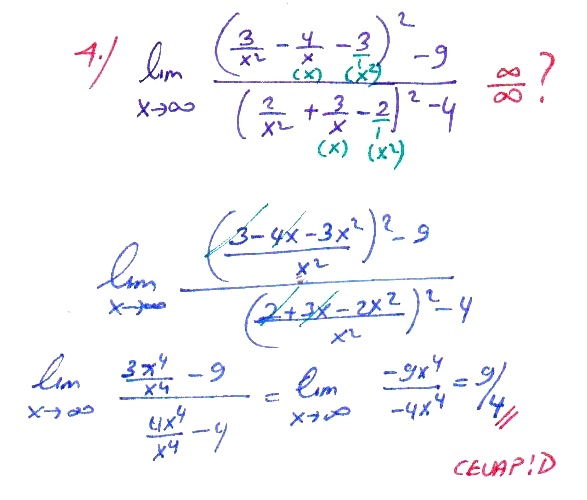 4.) lim x→∞ ((3/x² - 4/x - 3/1)² - 9) / ((2/x² + 3/x - 2/1)² - 4) ∞/∞ ?
(x) (x²)
(x) (x²)
lim x→∞ (((3 - 4x - 3x²)/x²)² - 9) / (((2 + 3x - 2x²)/x²)² - 4)
lim x→∞ (3x⁴/x⁴ - 9) / (4x⁴/x⁴ - 4) = lim x→∞ -9x⁴/-4x⁴ = 9/4
CEVAP:D